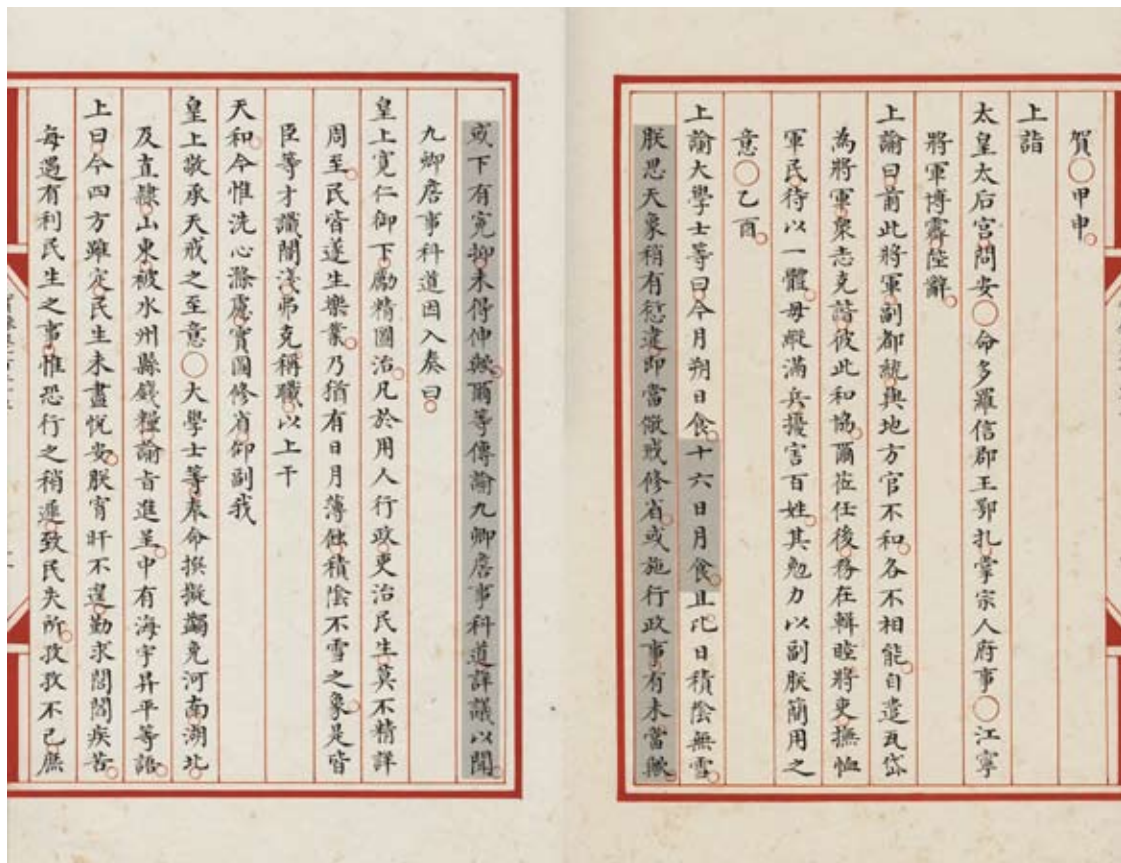 賀〇甲申
上詣
太皇太后宮問安〇命多羅信郡王鄂扎掌宗人府事〇江寧
將軍博霽陛辭
上諭曰前此將軍副都統與地方官不和各不相能自遣瓦岱
為將軍衆志克諧彼此和協爾蒞任後務在輯睦將吏撫恤
軍民待以一體毋縱滿兵擾害百姓其勉力以副朕簡用之
意〇乙酉
上諭大學士等曰今月朔日食十六日月食且比日積陰無雪
朕思天象稍有愆違即當儆戒修省或施行政事有未當歟
或下有寃抑未得伸歟爾等傳諭九卿詹事科道詳議以聞
九卿詹事科道因入奏曰
皇上寛仁御下勵精圖治凡於用人行政吏治民生莫不精詳
周至民皆遂生樂業乃猶有日月薄蝕積陰不雪之象是皆
臣等才識闇淺弗克稱職以上干
天和今惟洗心滌慮實圖修省仰副我
皇上敬承天戒之至意〇大學士等奉命撰擬蠲免河南湖北
及直隸山東被水州縣錢糧諭旨進呈中有海宇昇平等語
上曰今四方雖定民生未盡悅安朕宵旰不遑勤求閭閻疾苦
每遇有利民生之事惟恐行之稍遲致民失所孜孜不已應